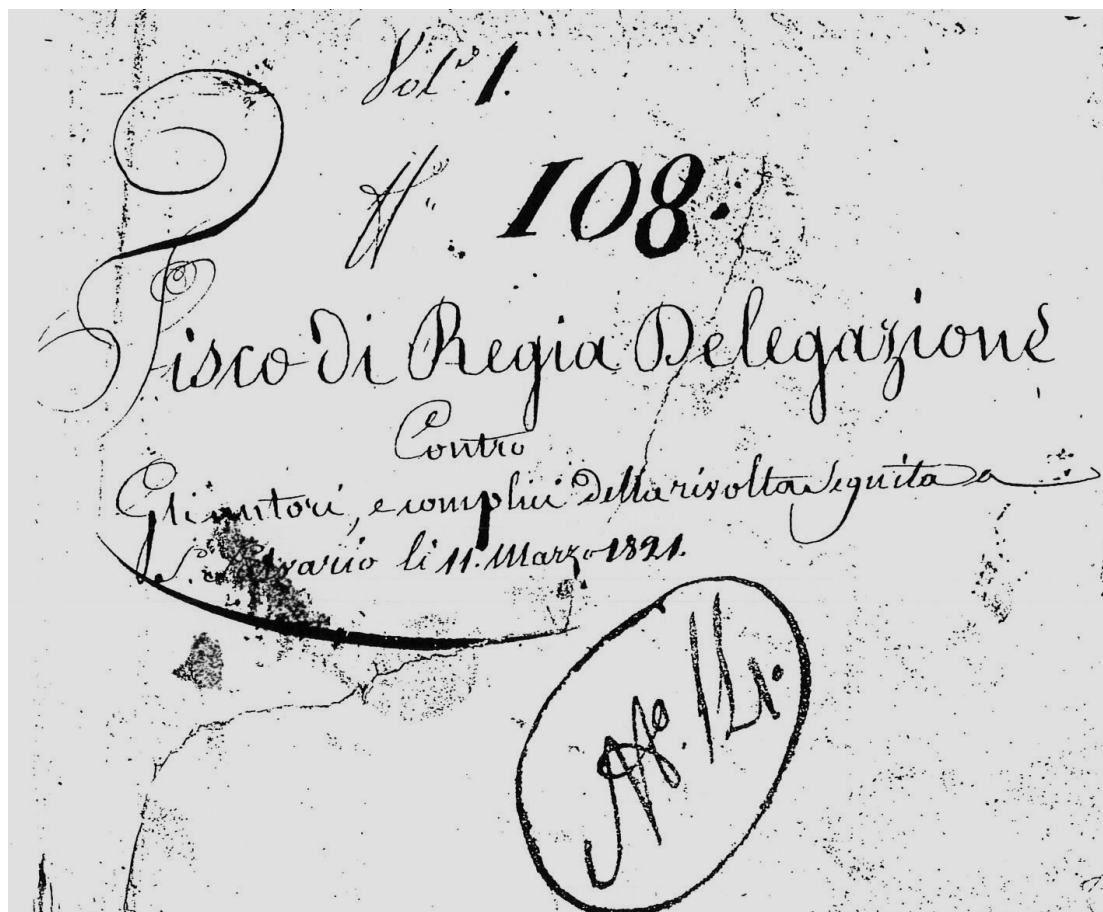 Vol.º 1.
N.º 108.
Fisco di Regia Delegazione
Contro
Gli autori, e complici della rivolta seguita a
S. Salvario li 11. Marzo 1821.
N.º